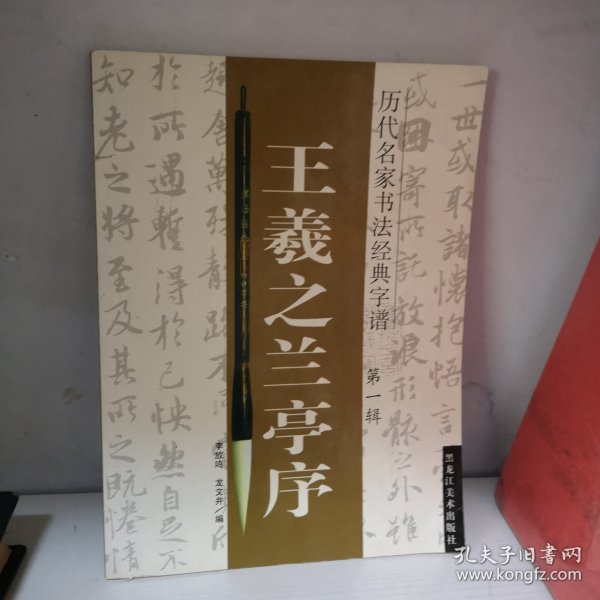 一世或取諸懷抱悟言
或因寄所託放浪形骸之外雖
历代名家书法经典字谱 第一辑
黑龙江美术出版社
王羲之兰亭序
李放鸣 龙文井/编
趣舍萬殊靜躁不同
於所遇暫得於己怏然自足不
知老之將至及其所之既惓情
孔夫子旧书网
www.kongfz.com